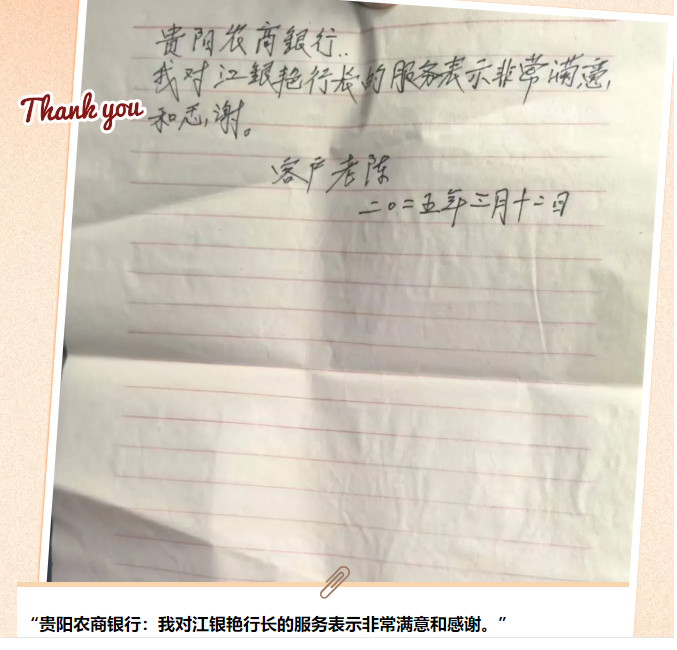 Thank you
贵阳农商银行..
我对江银艳行长的服务表示非常满意,
和感,谢。
客户老陈
二〇二五年三月十二日
“贵阳农商银行：我对江银艳行长的服务表示非常满意和感谢。”